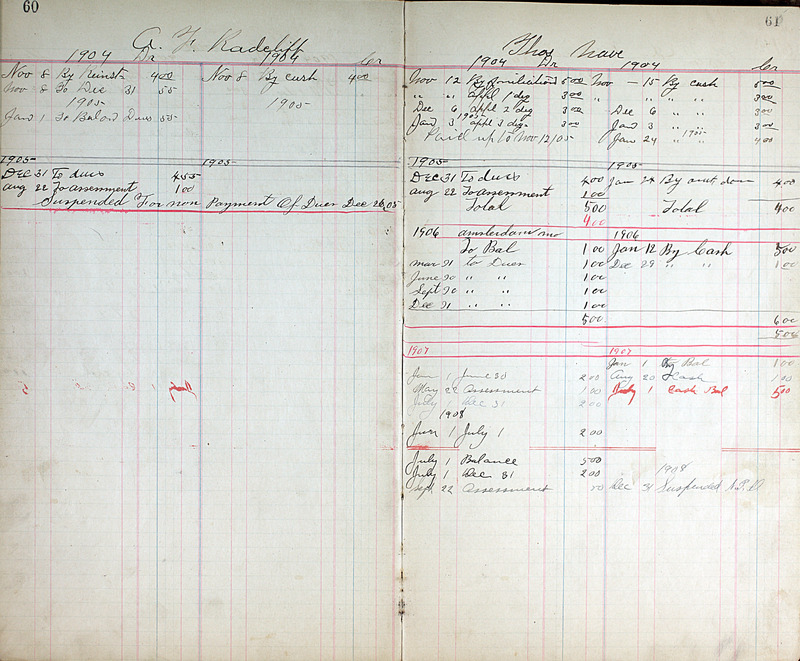 60
A. F. Radcliff
1904 Dr 1904 Cr
Nov 8 By Reinst 4 00 Nov 8 By cash 4 00
Nov 8 To Dec 31 55
1905 1905
Jan 1 To Bal on Dues 55
1905 1905
Dec 31 To dues 4 55
Aug 22 To assessment 1 00
Suspended For non Payment Of Dues Dec 26, 05
61
Thos Nave
1904 Dr 1904 Cr
Nov 12 By 5 00 Nov 15 By cash 5 00
" " appl 1 deg 3 00 " " " " 3 00
Dec 6 appl 2 deg 3 00 Dec 6 " " 3 00
1905
Jan 3 appl 3 deg 3 00 Jan 3 " " 3 00
1905
Paid up to Nov 12/05 Jan 24 " " 4 00
1905 1905
Dec 31 To dues 4 00 Jan 24 By amt down 4 00
Aug 22 To assessment 1 00
Total 5 00 Total 4 00
4 00
1906 Amsterdam Mo 1906
To Bal 1 00 Jan 12 By Cash 5 00
Mar 31 to Dues 1 00 Dec 29 " " 1 00
June 30 " " 1 00
Sept 30 " " 1 00
Dec 31 " " 1 00
5 00 6 00
5 00
1907 1907
Jan 1 By Bal 1 00
Jan 1 June 30 2 00 Aug 20 Cash 1 00
May 22 Assessment 1 00 July 1 Cash Bal 5 00
July 1 Dec 31 2 00
1908
Jan 1 July 1 2 00
July 1 Balance 5 00
July 1 Dec 31 2 00 1908
Sept 22 Assessment 50 Dec 31 Suspended N.P.D